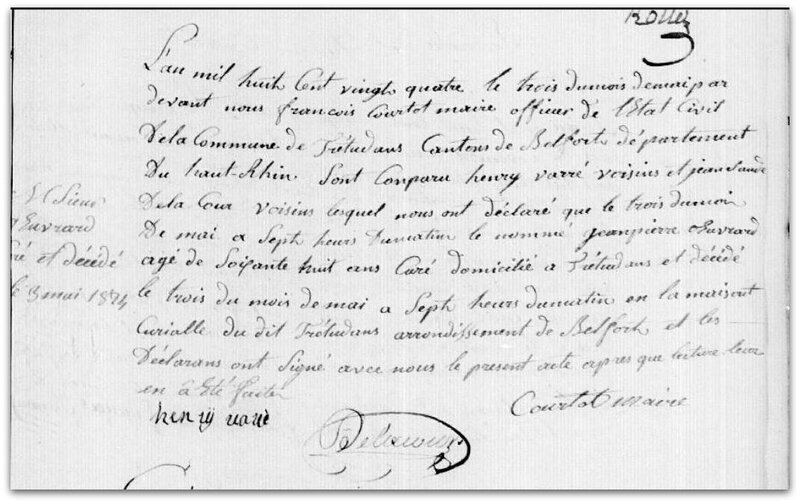 L'an mil huit Cent vingt quatre le trois du mois demai par
devant nous françois Courtot maire officier de l'Etat Civil
Dela Commune de Trétudans Cantons de Belfort département
Du haut-Rhin Sont Conparu henry varré voisins et jean claude
Dela Cour voisins lesquel nous ont déclaré que le trois dumois
De mai a Sept heurs Dumatin le nommé jeanpierre Euvrard
agé de Soixante huit ans Curé domicilié a Trétudans et décédé
le trois du mois de mai a Sept heurs dumatin en la maison
Curialle du dit Trétudans arrondissement de Belfort et les
Déclarans ont Signé avec nous le present acte apres que lecture leur
en à été faite
Sieur
Euvrard
et décédé
le 3 mai 1824
henrÿ varré
Delacour
Courtot maire